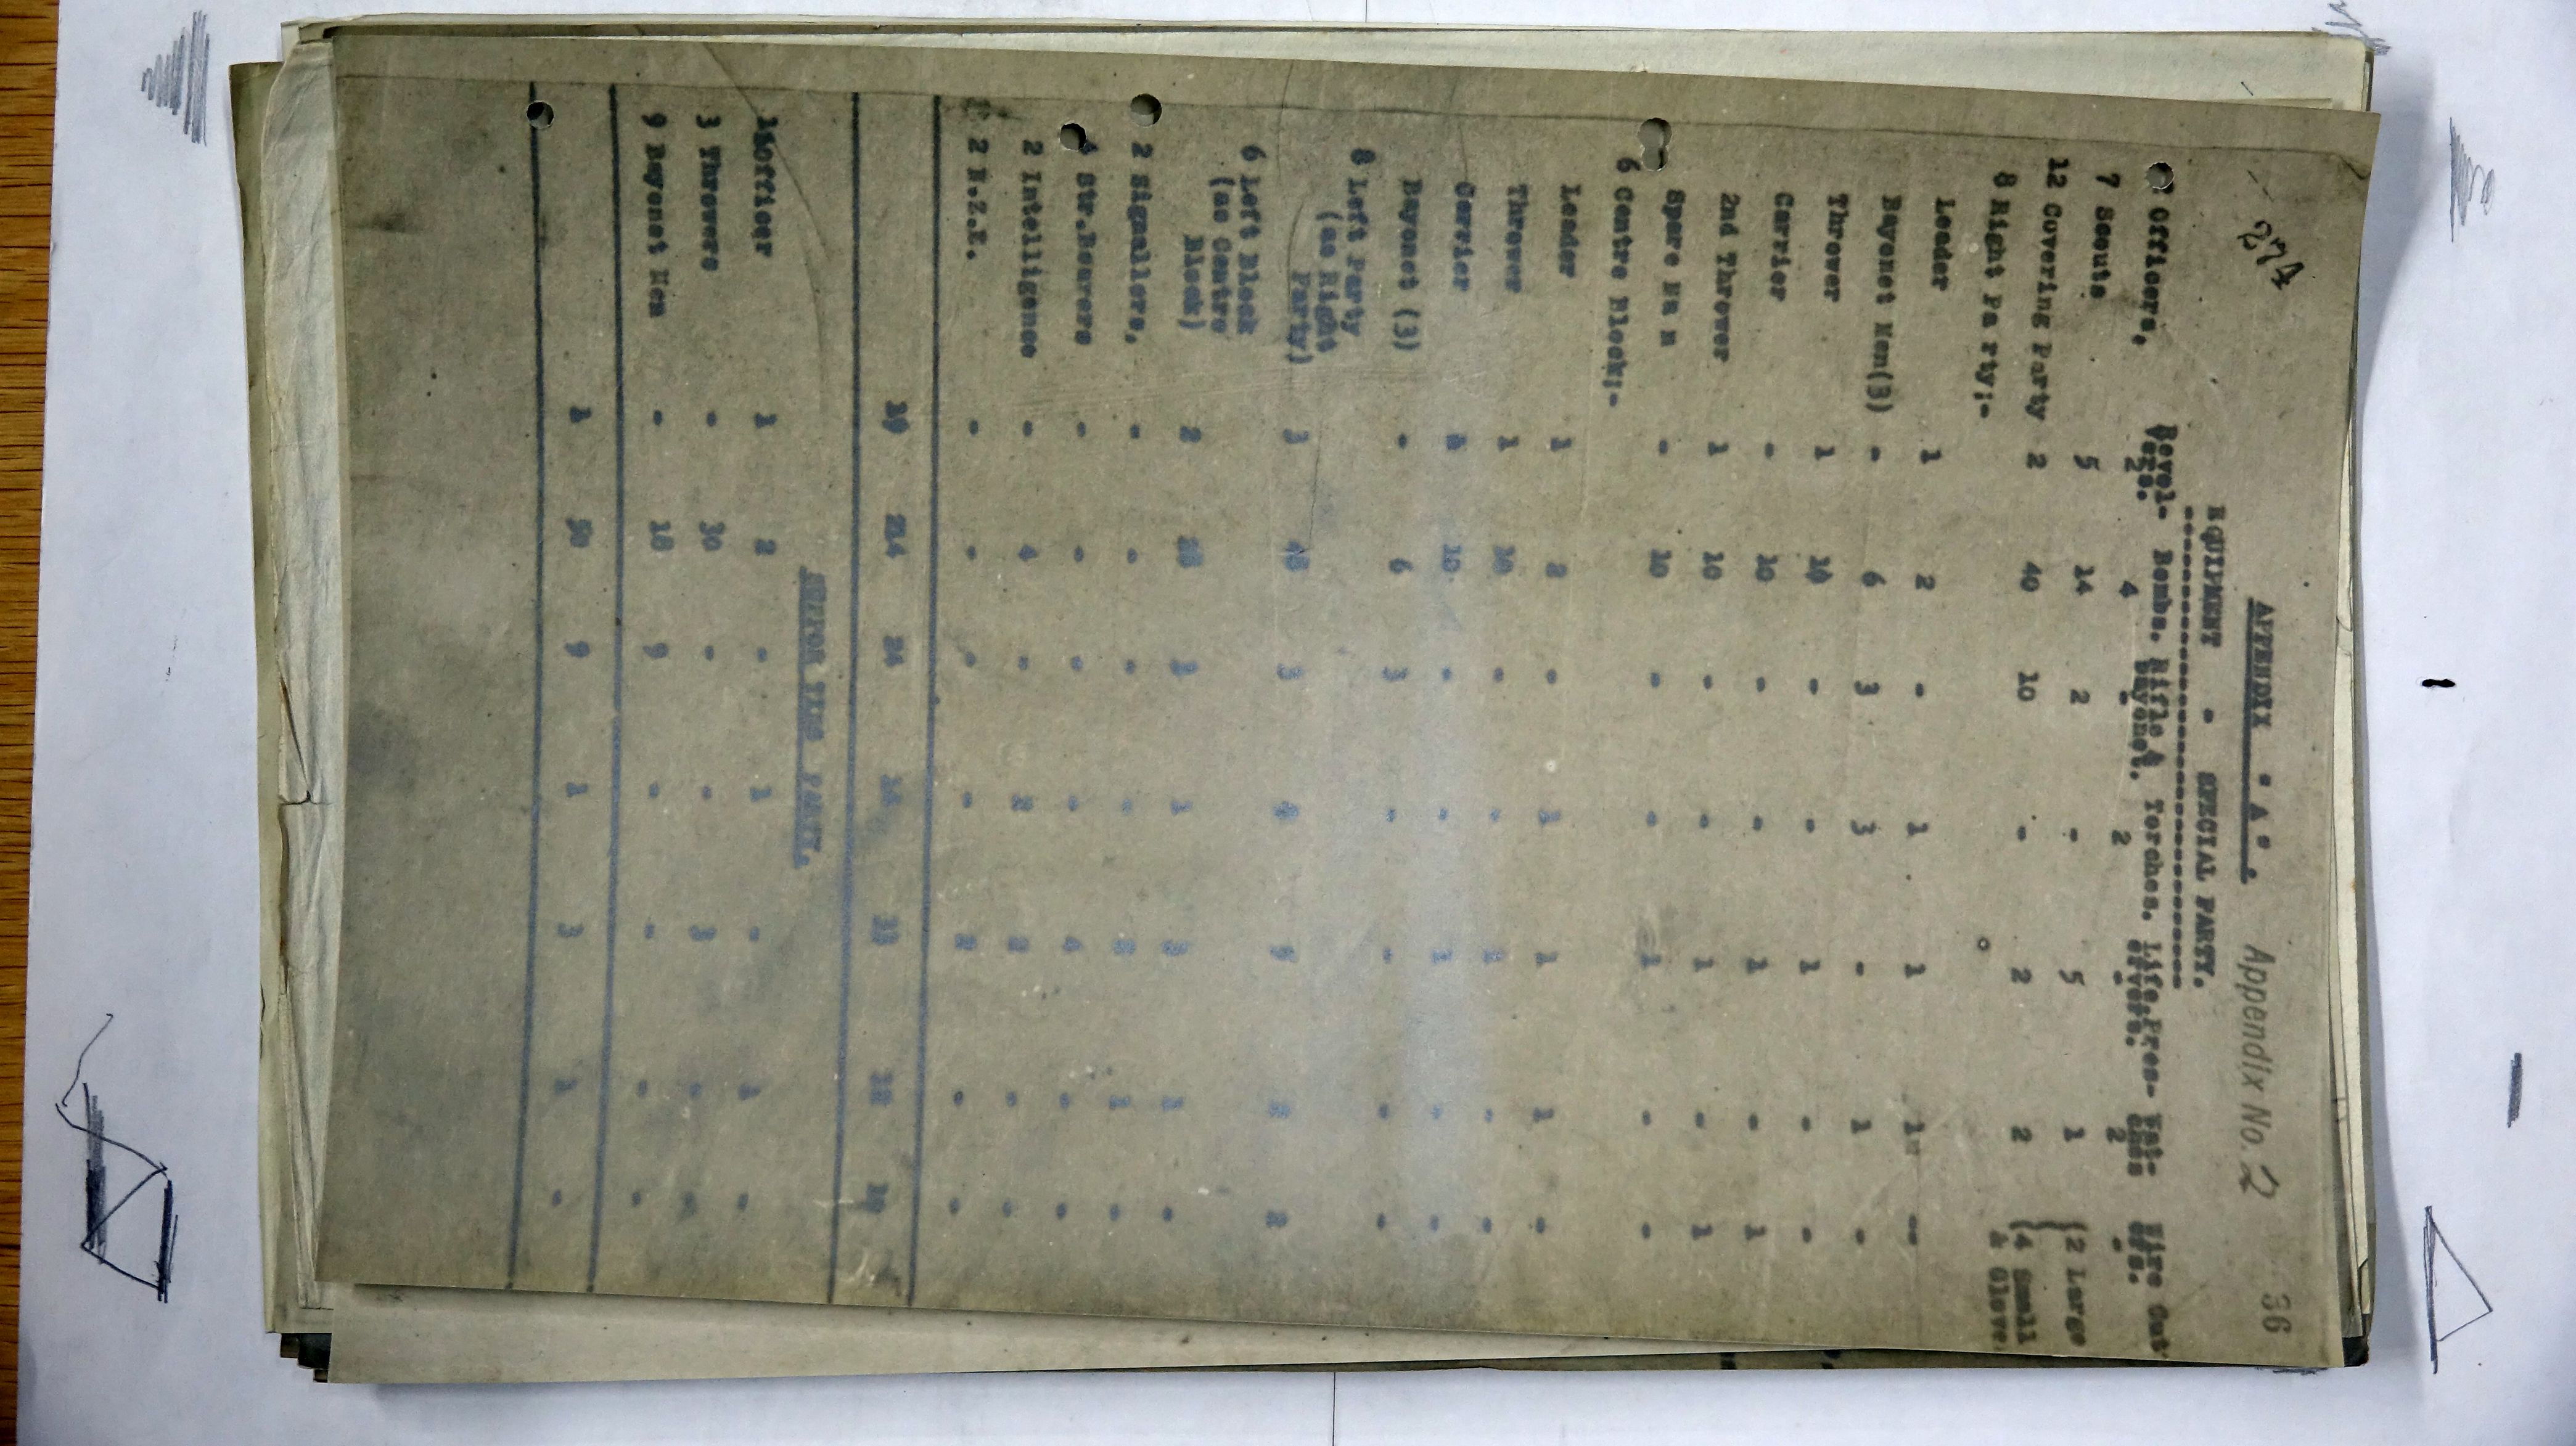 274
36
APPENDIX "A". Appendix No. 2
EQUIPMENT - SPECIAL PARTY.
Revol- Bombs. Rifle & Torches. Life Pres- Wat- Wire Cut
vers. Bayonet. ervers. ches ers.
Officers, 2 4 - 2 - 2 -
7 Scouts 5 14 2 - 5 1 (2 Large
12 Covering Party 2 40 10 - 2 2 (4 Small
8 Right Pa rty:- & Glove
Leader 1 2 - 1 1 1 -
Bayonet Men(3) - 6 3 3 - 1 -
Thrower 1 10 - - 1 - -
Carrier - 10 - - 1 - 1
2nd Thrower 1 10 - - 1 - 1
Spare Ma n - 10 - - 1 - -
6 Centre Block:-
Leader 1 2 - 1 1 1 -
Thrower 1 10 - - 1 - -
Carrier 10 - - 1 - -
Bayonet (3) - 6 3 - - - -
8 Left Party
(as Right
Party) 3 48 3 4 5 2 2
6 Left Block
(as Centre
Block) 2 28 3 1 3 1 -
2 Signallers, - - - - 2 1 -
4 Str.Bearers - - - - 4 - -
2 Intelligence - 4 - 2 2 - -
2 N.Z.E. - - - - 2 - -
19 214 24 14 33 12
SUPPORTING PARTY.
1 Officer 1 2 - 1 - 1 -
3 Throwers - 30 - - 3 - -
9 Bayonet Men - 18 9 - - - -
1 50 9 1 3 1 -